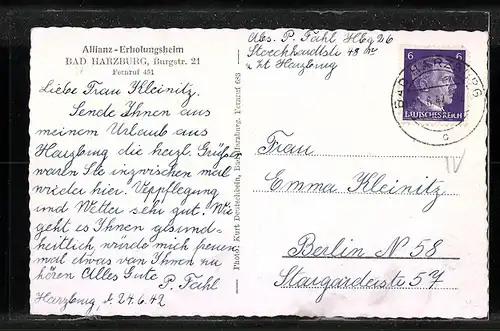 Allianz - Erholungsheim
BAD HARZBURG, Burgstr. 21
Fernruf 451
Liebe Frau Kleinitz.
Sende Ihnen aus
meinem Urlaub aus
Harzburg die herzl. Grüße
waren Sie inzwischen mal
wieder hier. Verpflegung
und Wetter sehr gut. Wie
geht es Ihnen gesund-
heitlich, würde mich freuen
mal etwas von Ihnen zu
hören Alles Gute
P. Fahl
Harzburg, d. 24.6.42
Photo: Kurt Bad Harzburg, Fernruf 683
Abs. P. Fahl Hbg 26
48
z Zt Harzburg
6 6
DEUTSCHES REICH
BAD HARZBURG
c
Frau
Emma Kleinitz
Berlin N 58
Stargarderstr 57